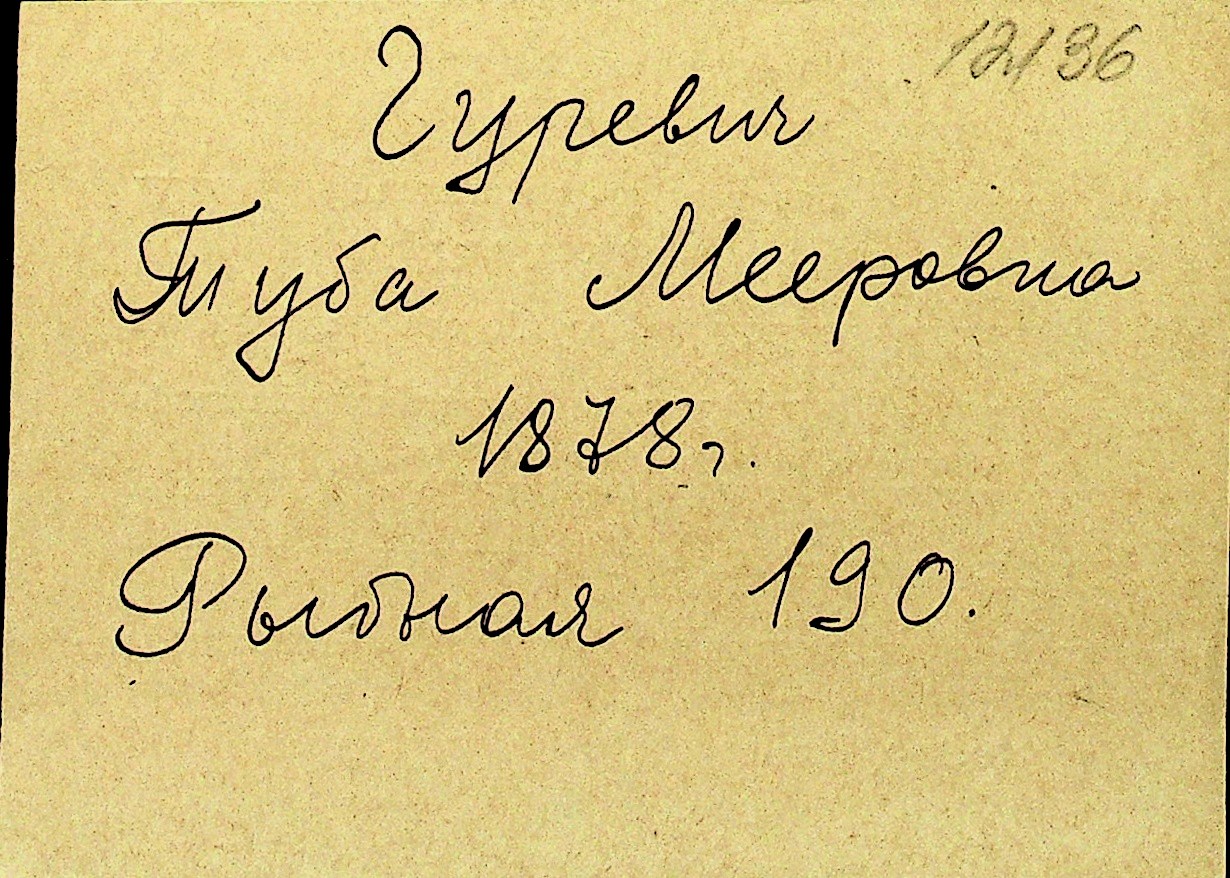 12136
Гуревич
Туба Мееровна
1878г.
Рыбная 190.